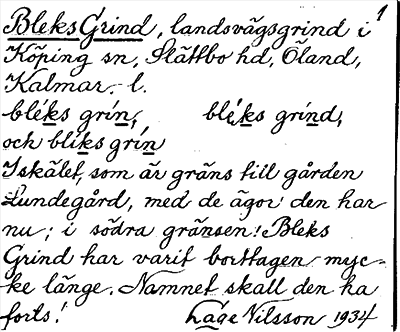 Bleks Grind, landsvägsgrind i 1
Köping sn, Slättbo hd, Öland,
Kalmar. l.
bléks grín, bléks grínd,
och blíks grín
I skälet, som är gräns till gården
Lundegård, med de ägor den har
nu; i södra gränsen! Bleks
Grind har varit borttagen myc-
ke länge. Namnet skall den ha
forts! Låge Nilsson 1934